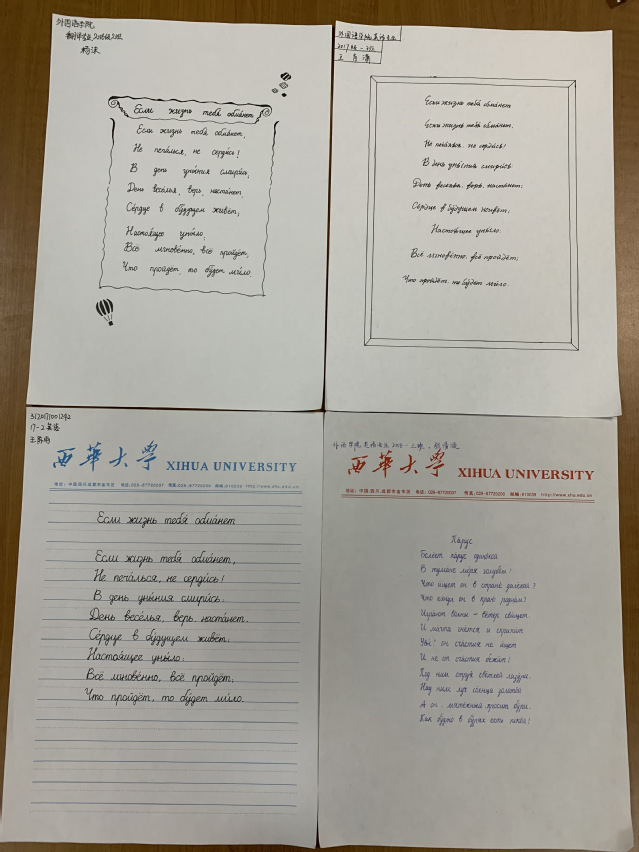 外国语学院
翻译专业2018级2班
杨沫
Если жизнь тебя обманет
Если жизнь тебя́ обма́нет,
Не печа́лься, не серди́сь!
В день уны́ния смири́сь,
День весе́лья, верь, наста́нет.
Се́рдце в бу́дущем живёт;
Настоя́щее уны́ло:
Всё мгнове́нно, всё пройдёт;
Что пройдёт, то бу́дет ми́ло
外国语学院英语专业
2017级一班
Если жизнь тебя́ обма́нет
Если жизнь тебя́ обма́нет.
Не печа́лься. не серди́сь!
В день уны́ния смири́сь
День верь. наста́нет;
Се́рдце в бу́дущем живёт;
Настоя́щее уны́ло.
Всё мгнове́нно. всё пройдёт;
Что пройдёт. бу́дет ми́ло.
312017001242
17-2英语
西華大學 XIHUA UNIVERSITY
地址:中国四川成都市金牛区 电话:028-87720037 传真:028-87720200 邮编:610039 http://www.xhu.edu.cn
Если жизнь тебя́ обма́нет
Если жизнь тебя́ обма́нет,
Не печа́лься, не серди́сь!
В день уны́ния смири́сь:
День весе́лья, верь. наста́нет.
Се́рдце в бу́дущем живёт;
Настоя́щее уны́ло:
Всё мгнове́нно, всё пройдёт;
Что пройдёт, то бу́дет ми́ло.
外语学院英语专业
西華大學 XIHUA UNIVERSITY
地址:中国四川成都市金牛区 电话:028-87720037 传真:028-87720200 邮编:610039 http://www.xhu.edu.cn
Па́рус
Белеет парус одинокой
В тумане моря голубом!
Что ищет он в стране далёкой?
Что кинул он в краю родном?
Играют волны – ветер свищет
И мачта гнётся и скрипит
Увы! он счастия не ищет
И не от счастия бежит!
Под ним струя светлей лазури.
Над ним луч солнца золотой
А он. мятежный просит бури.
Как будто в бурях есть покой!